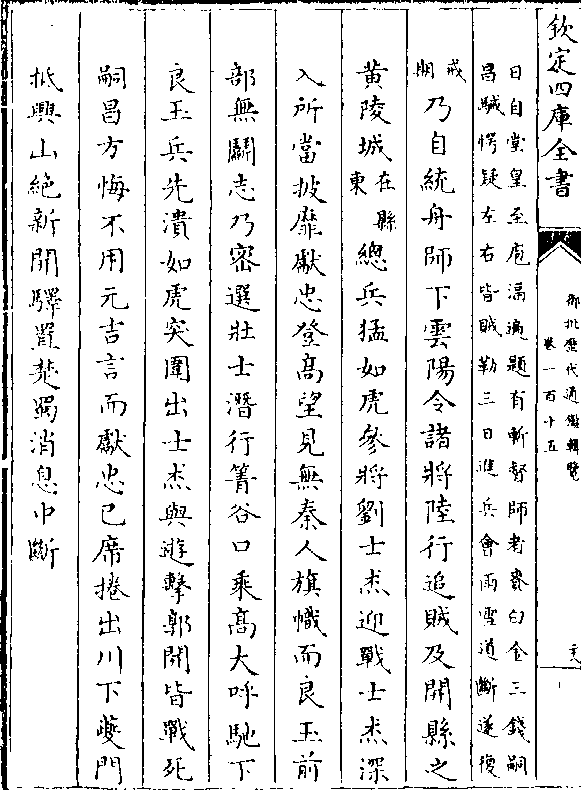 欽定四庫全書
御批歷代通鑑輯覽
卷一百十五
日自堂皇至庖湢遍題有斬督師者賚白金三錢嗣
昌駴愕疑左右皆賊勒三日進兵會雨雪道斷遂復
戒
期
乃自統舟師下雲陽令諸將陸行追賊及開縣之
黄陵城
在縣
東
總兵猛如虎參將劉士杰迎戰士杰深
入所當披靡獻忠登高望見無秦人旗幟而良玉前
部無鬬志乃密選壯士潛行箐谷口乘高大呼馳下
良玉兵先潰如虎突圍出士杰與遊擊郭開皆戰死
嗣昌方悔不用元吉言而獻忠已席捲出川下夔門
抵興山絶新開驛置楚蜀消息中斷